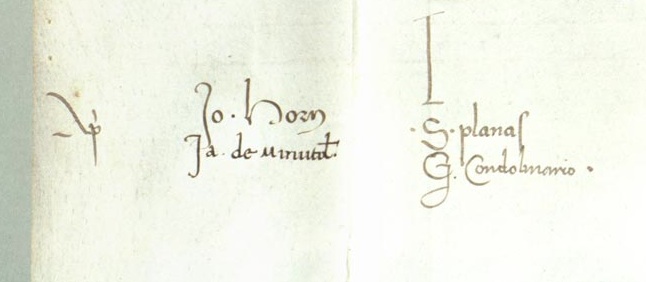 Jo. Horn
Ja. de Minutul.
I
. S. planas
G. Condolmario .